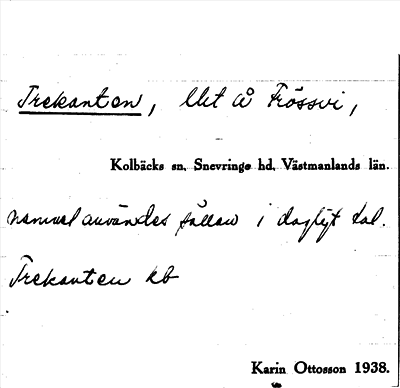 Trekanten, litt å Frössvi,
Kolbäcks sn, Snevringe hd, Västmanlands län.
namnet användes sällan i dagligt tal.
Trekanten kb
Karin Ottosson 1938.